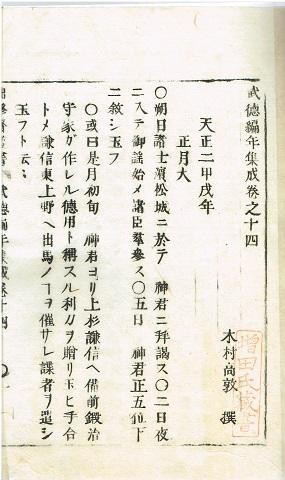 武徳編年集成卷之十四
木村高敦 撰
増田氏蔵書
天正二甲戌年
正月大
〇朔日諸士濱松城ニ於テ 神君ニ拜謁ス〇二日夜
ニ入テ御謡始メ諸臣羣參ス〇五日 神君正五位下
ニ敘シ玉フ
〇或曰是月初旬 神君ヨリ上杉謙信ヘ備前鍛冶
守家ガ作レル徳用ト稱スル利刀ヲ贈リ玉ヒ手合
トメ謙信東上野ヘ出馬ノヿヲ催サレ諜者ヲ遣シ
玉フト云云
武徳編年集成卷十四